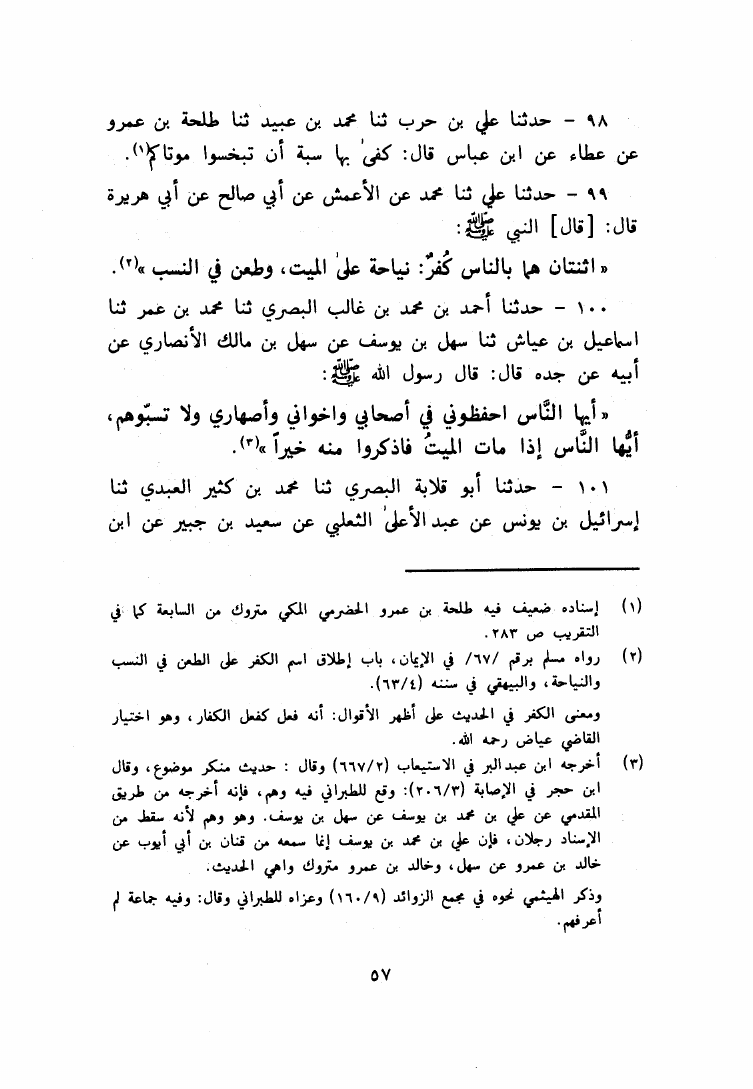 ٩٨ - حدثنا علي بن حرب ثنا محمد بن عبيد ثنا طلحة بن عمرو
عن عطاء عن ابن عباس قال: كفىٰ بها سبة أن تبخسوا موتاكم(١).
٩٩ - حدثنا علي ثنا محمد عن الأعمش عن أبي صالح عن أبي هريرة
قال: [قال] النبي ﷺ:
« اثنتان هما بالناس كُفرٌ: نياحة علىٰ الميت، وطعن في النسب »(٢).
١٠٠ - حدثنا أحمد بن محمد بن غالب البصري ثنا محمد بن عمر ثنا
اسماعيل بن عياش ثنا سهل بن يوسف عن سهل بن مالك الأنصاري عن
أبيه عن جده قال: قال رسول الله ﷺ:
« أيها النَّاس احفظوني في أصحابي واخواني وأصهاري ولا تسبّوهم،
أيُّها النَّاس إذا مات الميتُ فاذكروا منه خيراً »(٣).
١٠١ - حدثنا أبو قلابة البصري ثنا محمد بن كثير العبدي ثنا
إسرائيل بن يونس عن عبد الأعلىٰ الثعلبي عن سعيد بن جبير عن ابن
(١) إسناده ضعيف فيه طلحة بن عمرو الحضرمي المكي متروك من السابعة كما في
التقريب ص ٢٨٣.
(٢) رواه مسلم برقم /٦٧/ في الإيمان، باب إطلاق اسم الكفر على الطعن في النسب
والنياحة، والبيهقي في سننه (٦٣/٤).
ومعنى الكفر في الحديث على أظهر الأقوال: أنه فعل كفعل الكفار، وهو اختيار
القاضي عياض رحمه الله.
(٣) أخرجه ابن عبد البر في الاستيعاب (٦٦٧/٢) وقال : حديث منكر موضوع، وقال
ابن حجر في الإصابة (٢٠٦/٣): وقع للطبراني فيه وهم، فإنه أخرجه من طريق
المقدمي عن علي بن محمد بن يوسف عن سهل بن يوسف. وهو وهم لأنه سقط من
الإسناد رجلان، فإن علي بن محمد بن يوسف إنما سمعه من قنان بن أبي أيوب عن
خالد بن عمرو عن سهل، وخالد بن عمرو متروك واهي الحديث.
وذكر الهيثمي نحوه في مجمع الزوائد (١٦٠/٩) وعزاه للطبراني وقال: وفيه جماعة لم
أعرفهم.
٥٧